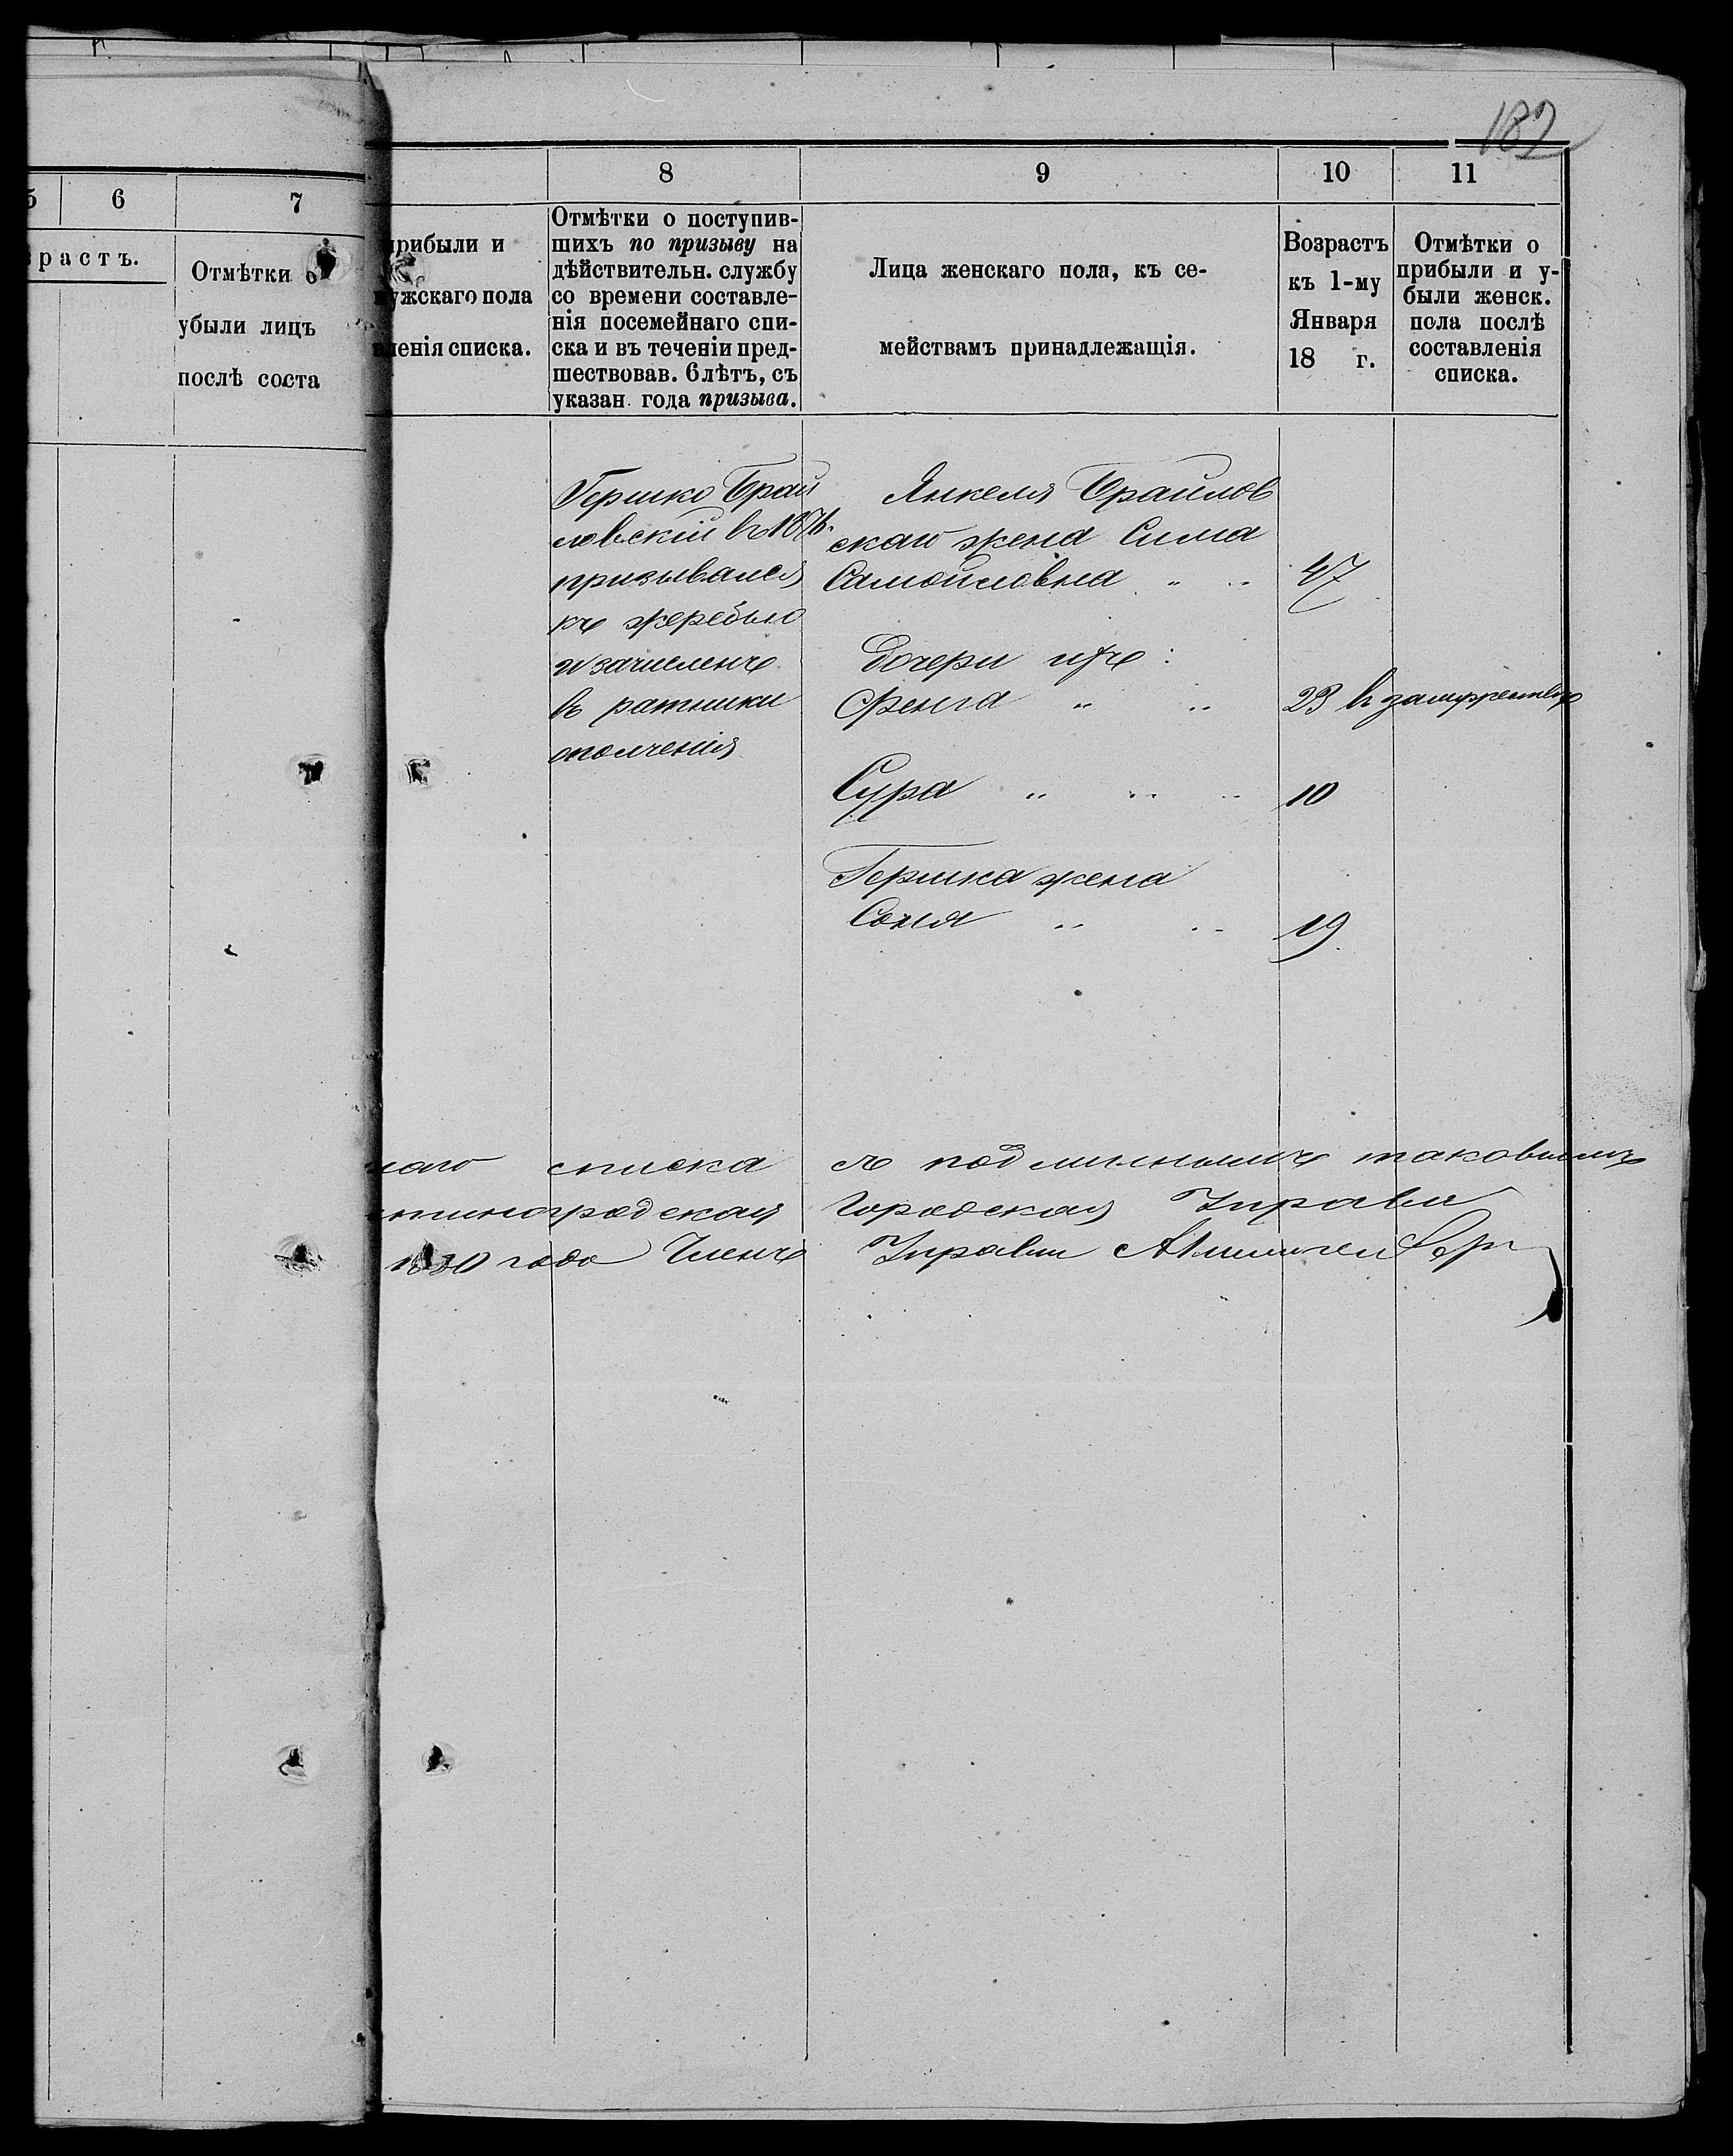 182
6 7
растъ.
Отмѣтки о
убыли лицъ
послѣ соста
8 9 10 11
прибыли и
мужскаго пола
вленія списка.
Отмѣтки о поступив-
шихъ по призыву на
дѣйствительн. службу
со времени составле-
нія посемейнаго спи-
ска и въ теченіи пред-
шествовав. 6 лѣтъ, съ
указан. года призыва.
Лица женскаго пола, къ се-
мействамъ принадлежащія.
Возрастъ
къ 1-му
Января
18 г.
Отмѣтки о
прибыли и у-
были женск.
пола послѣ
составленія
списка.
Гершко Браи
ловскій въ
призывался
къ жеребью
и зачисленъ
въ ратники
ополченія
Янкеля Браилов
скаго жена Сима
Самойловна " " 47
Дочери ихъ:
Фейга " " 23 въ замужествѣ
Сура " " " 10
Гершка жена
Соня " " 19
наго списка съ подлиннымъ таковымъ
тиноградская Городская Управа
1880 года Членъ Управы